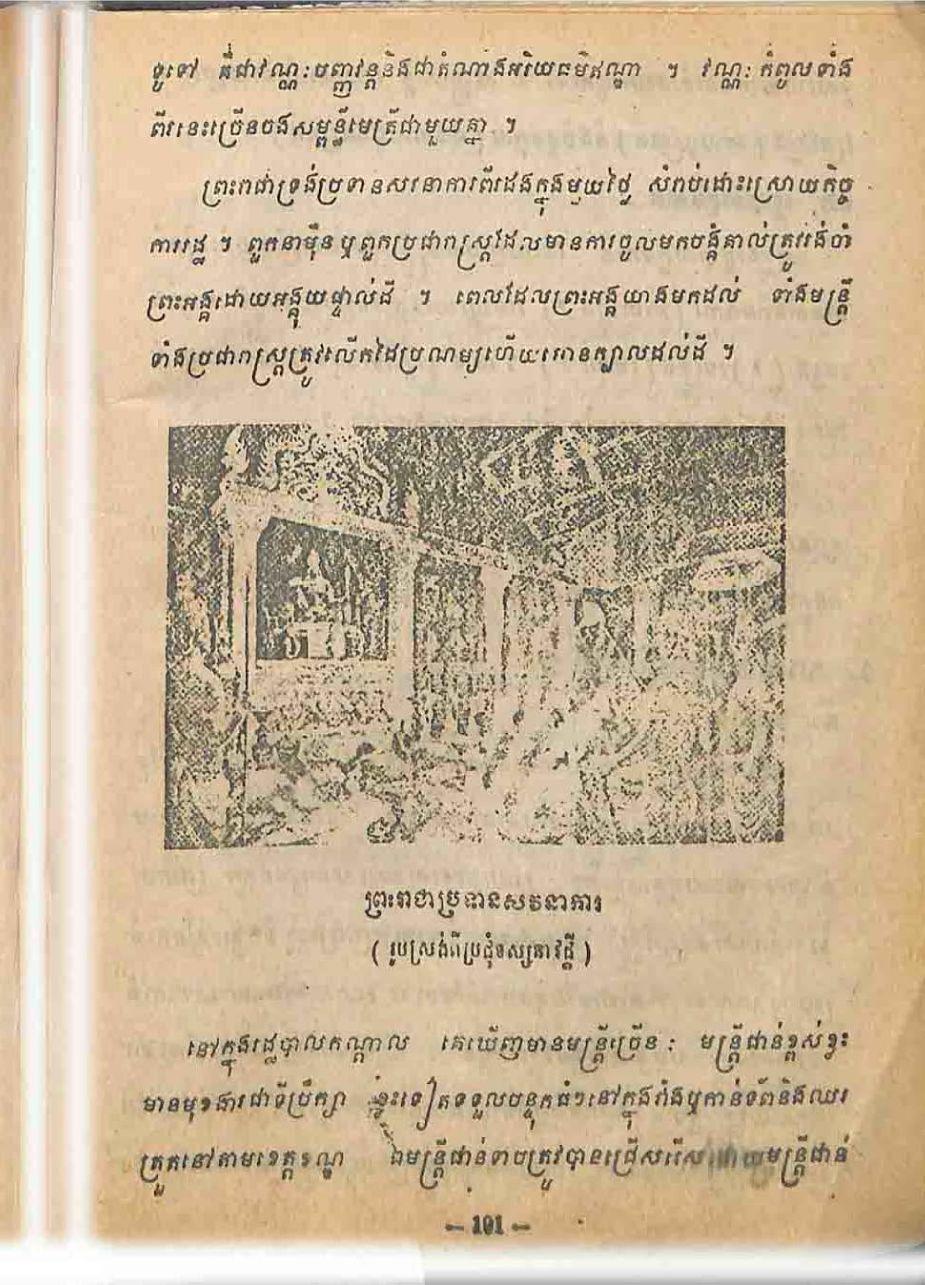 ទូទៅ គឺជាវណ្ណៈបញ្ញវន្តនិងជាតំណាងអរិយធម៌ឥណ្ឌា ។ វណ្ណៈកំពូលទាំង
ពីរនេះច្រើនចងសម្ពន្ធមេត្រីជាមួយគ្នា ។
ព្រះរាជាទ្រង់ប្រទានសវនាការពីរដងក្នុងមួយថ្ងៃ សំរាប់ដោះស្រាយកិច្ច
ការរដ្ឋ ។ ពួកនាម៉ឺនឬពួកប្រជារាស្ត្រដែលមានការចូលមកបង្គំគាល់ត្រូវរង់ចាំ
ព្រះអង្គដោយអង្គុយផ្ទាល់ដី ។ ពេលដែលព្រះអង្គយាងមកដល់ ទាំងមន្ត្រី
ទាំងប្រជារាស្ត្រត្រូវលើកដៃប្រណម្យហើយអោនក្បាលដល់ដី ។
ព្រះរាជាប្រទានសវនាការ
( រូបស្រង់ពីប្រជុំទស្សនាវដ្ដី )
នៅក្នុងរដ្ឋបាលកណ្ដាល គេឃើញមានមន្ត្រីច្រើន : មន្ត្រីជាន់ខ្ពស់ខ្លះ
មានមុខងារជាទីប្រឹក្សា ខ្លះទៀតទទួលបន្ទុកធំៗនៅក្នុងវាំងឬកាន់ទ័ពនិងឈរ
ត្រួតនៅតាមខេត្តខណ្ឌ ឯមន្ត្រីជាន់ទាបត្រូវបានជ្រើសរើសដោយមន្ត្រីជាន់
– 101 –